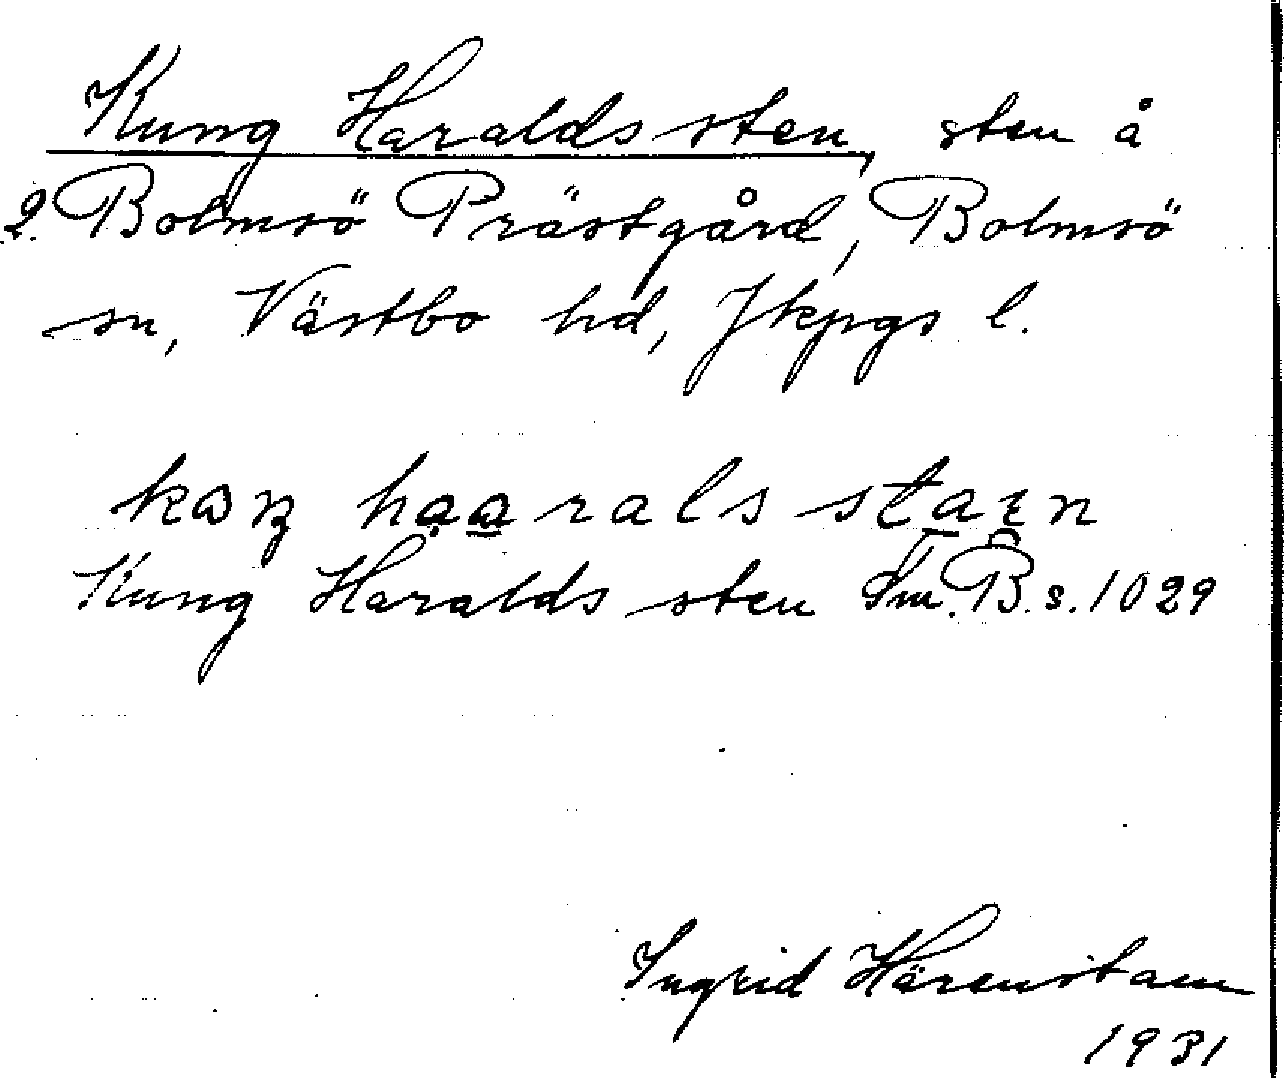 Kung Haralds sten, sten å
2. Bolmsö Prästgård, Bolmsö
sn, Västbo hd, Jkpgs l.
haarals
Kung Haralds sten Sm. B. s. 1029
Ingrid Härenstam
1931